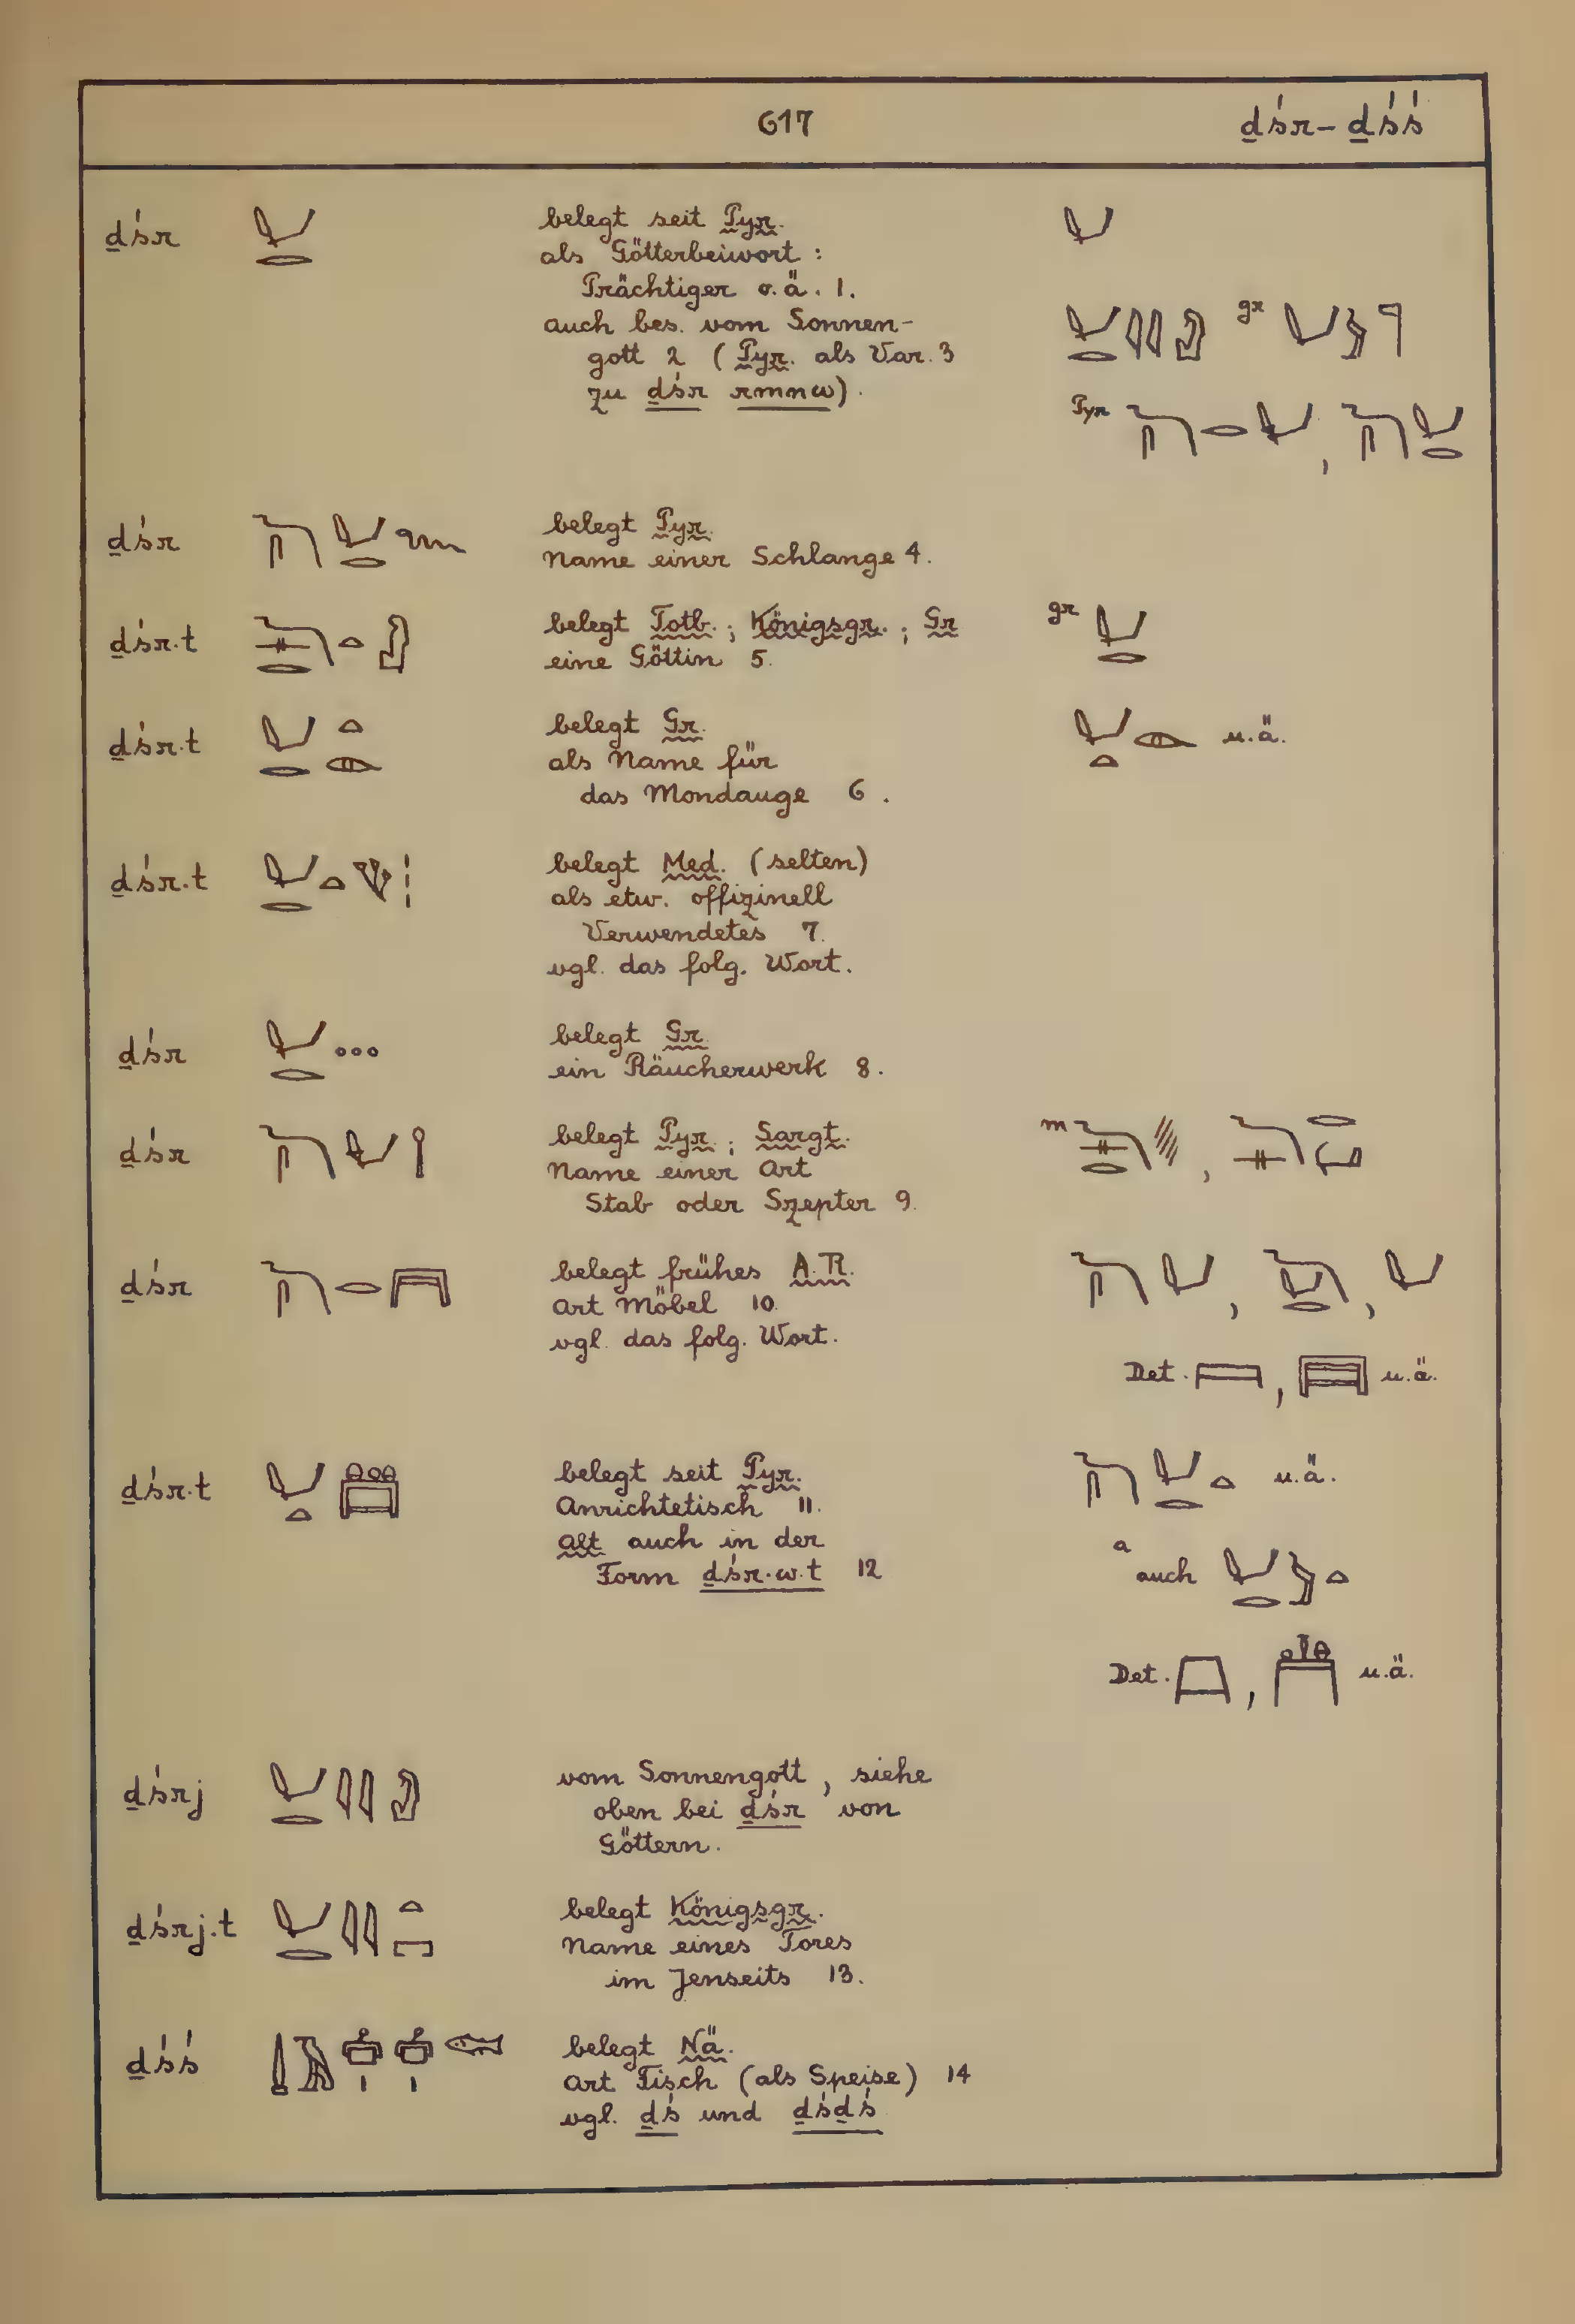 617 ḏśr – ḏśś
ḏśr belegt seit Pyr.
als Götterbeiwort :
Prächtiger o.ä. 1.
auch bes. vom Sonnen-
gott 2 (Pyr. als Var. 3
zu ḏśr rmnw).
gr
Pyr
ḏśr belegt Pyr.
Name einer Schlange 4.
ḏśr.t belegt Totb. ; Königsgr. ; Gr gr
eine Göttin 5.
ḏśr.t belegt Gr. u.ä.
als Name für
das Mondauge 6 .
ḏśr.t belegt Med. (selten)
als etw. offizinell
Verwendetes 7.
vgl. das folg. Wort.
ḏśr belegt Gr.
ein Räucherwerk 8 .
ḏśr belegt Pyr. ; Sargt. m
Name einer Art
Stab oder Szepter 9.
ḏśr belegt frühes A.R.
Art Möbel 10.
vgl. das folg. Wort.
Det. u.ä.
ḏśr.t belegt seit Pyr. u.ä.
Anrichtetisch 11.
alt auch in der
Form ḏśr.w.t 12
a auch
Det. u.ä.
ḏśrj vom Sonnengott , siehe
oben bei ḏśr von
Göttern.
ḏśrj.t belegt Königsgr.
Name eines Tores
im Jenseits 13.
ḏśś belegt Nä.
Art Fisch (als Speise) 14
vgl. ḏś und ḏśḏś